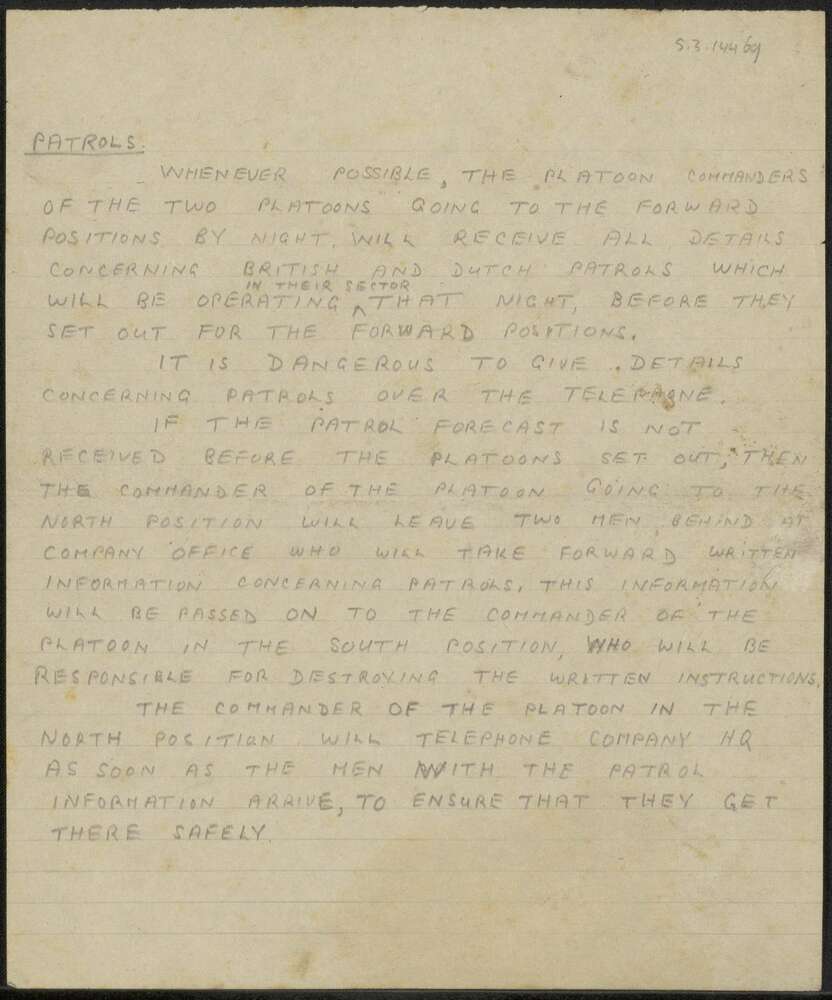 S.3.144 bg
PATROLS.
WHENEVER POSSIBLE, THE PLATOON COMMANDERS
OF THE TWO PLATOONS GOING TO THE FORWARD
POSITIONS BY NIGHT, WILL RECEIVE ALL DETAILS
CONCERNING BRITISH AND DUTCH PATROLS WHICH
IN THEIR SECTOR
WILL BE OPERATING ^ THAT NIGHT, BEFORE THEY
SET OUT FOR THE FORWARD POSITIONS.
IT IS DANGEROUS TO GIVE DETAILS
CONCERNING PATROLS OVER THE TELEPHONE.
IF THE PATROL FORECAST IS NOT
RECEIVED BEFORE THE PLATOONS SET OUT, THEN
THE COMMANDER OF THE PLATOON GOING TO THE
NORTH POSITION WILL LEAVE TWO MEN BEHIND AT
COMPANY OFFICE WHO WILL TAKE FORWARD WRITTEN
INFORMATION CONCERNING PATROLS, THIS INFORMATION
WILL BE PASSED ON TO THE COMMANDER OF THE
PLATOON IN THE SOUTH POSITION, WHO WILL BE
RESPONSIBLE FOR DESTROYING THE WRITTEN INSTRUCTIONS.
THE COMMANDER OF THE PLATOON IN THE
NORTH POSITION WILL TELEPHONE COMPANY HQ
AS SOON AS THE MEN WITH THE PATROL
INFORMATION ARRIVE, TO ENSURE THAT THEY GET
THERE SAFELY.